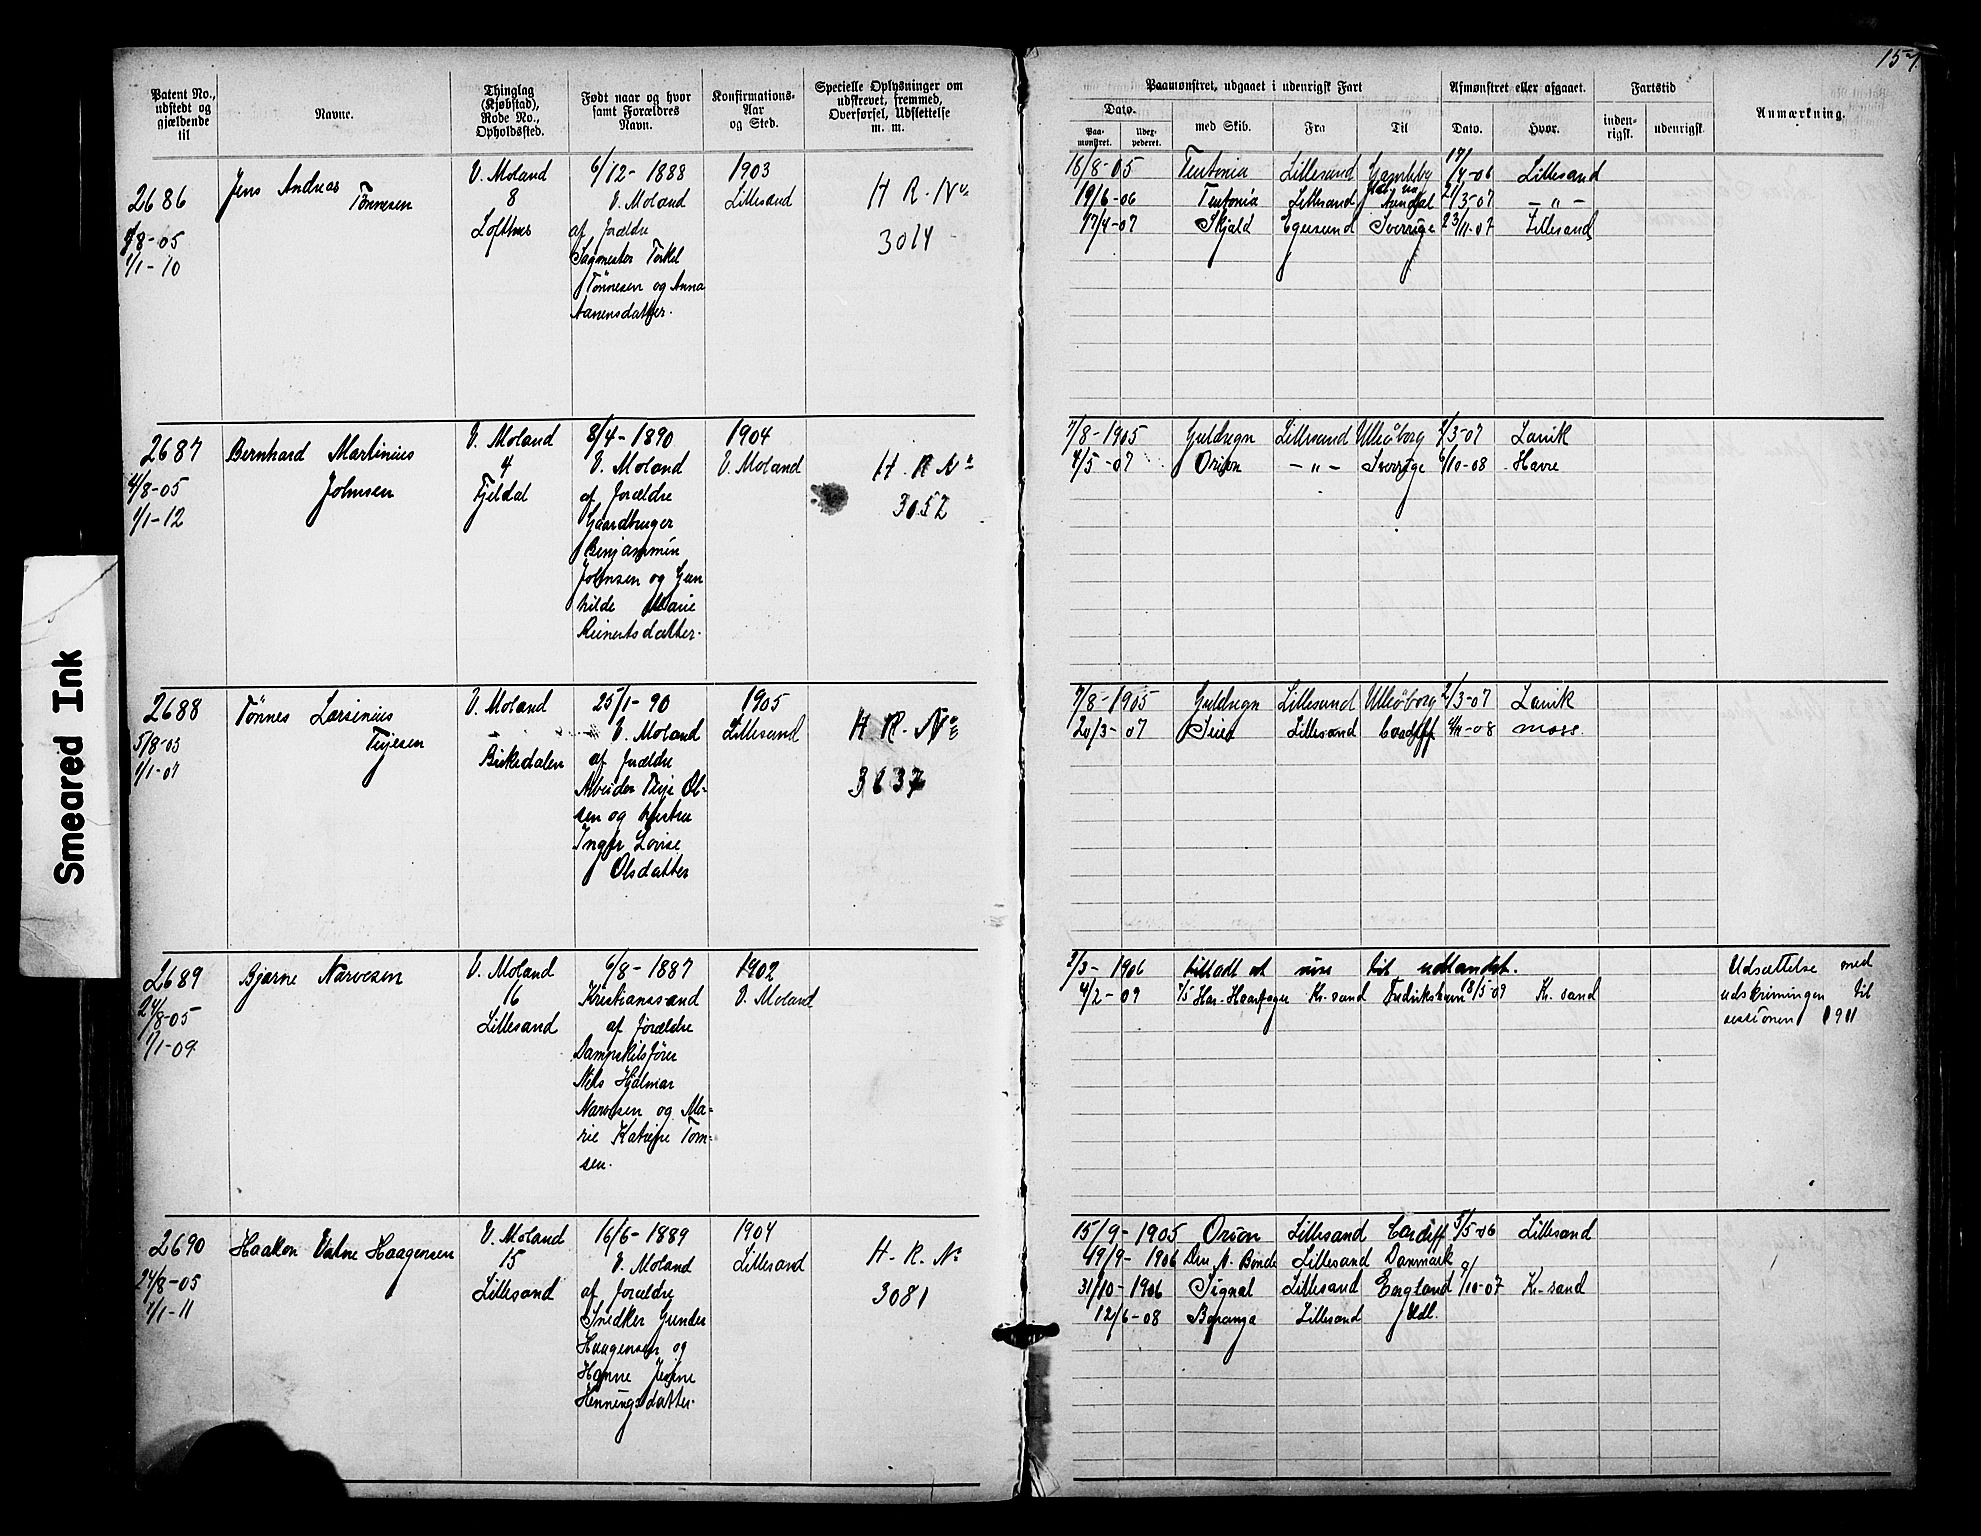 Smeared Ink
Patent No., udstedt og gjældende til
Navne.
Thinglag (Kjøbstad), Rode No., Opholdssted.
Født naar og hvor samt Forældres Navn.
Konfirmations-Aar og Sted.
Specielle Oplysninger om udskrevet, fremmed, Overførsel, Udslettelse m. m.
2686
/8-05
1/1-10
Jens Andreas
Tønnesen
V. Moland
8
Lofthus
6/12-1888
V. Moland
af forældre
Sagmester Terkel
Tønnesen og Anna
Aanensdatter.
1903
Lillesand
H R. No
3014
2687
4/8-05
1/1-12
Bernhard Martinius
Johnsen
V. Moland
4
Fjeldal
8/4-1890
V. Moland
af forældre
Gaardbruger
Benjammin
Johnsen og Gun
hilde Marie
Reinertsdatter.
1904
V. Moland
H. R No
3052
2688
5/8-05
1/1-07
Tønnes Larsinius
Terjesen
V. Moland
-
Birkedalen
25/1-90
V. Moland
af forældre
Arbeider Terje Ol-
sen og hustru
Inger Lovise
Olsdatter
1905
Lillesand
H R. No
3037
2689
24/8-05
1/1-09
Bjarne Narvesen
V. Moland
16
Lillesand
6/8-1887
Kristianssand
af forældre
Dampskibsfører
Nils Hjalmar
Narvesen og Ma-
rie Katrine Tom-
sen.
1902
V. Moland
2690
24/8-05
1/1-11
Haakon Valne Haagensen
V. Moland
15
Lillesand
16/6-1889
V. Moland
af forældre
Snedker Gunder
Haagensen og
Hanne Jesine
Henningsdatter.
1904
Lillesand
H. R. No
3081
Paamønstret, udgaaet i udenrigsk Fart
Afmønstret eller afgaaet.
Fartstid
Anmærkning.
Dato.
Paa-mønstret.
Udex-pederet.
med Skib.
Fra
Til
Dato.
Hvor.
inden-rigsk.
udenrigsk.
16/8-05 Teutonia Lillesand 17/4-06 Lillesand
19/6-06 Teutonia Lillesand Arendal 2/3-07 - " -
17/4-07 Skjald Egersund Sverrige 23/11-07 Lillesand
7/8-1905 Guldregn Lillesand Ulleåborg 2/3-07 Larvik
4/5-07 Orion - " - Sverrige 6/10-08 Havre
7/8-1905 Guldregn Lillesand Ulleåborg 2/3-07 Larvik
20/3-07 Lillesand Cardiff 4/11-08 moss.
3/3-1906 tilladt at reise til udlandet.
4/2-09 Kr. sand Fredrikshavn 18/5-09 Kr. sand
Udsættelse med
udskrivningen til
sessionen 1911
15/9-1905 Orion Lillesand Cardiff 5/5-06 Lillesand
19/9-1906 Den N. Bonde Lillesand Danmark
31/10-1906 Signal Lillesand England 9/10-07 Kr. sand
12/6-08 Lillesand Udl.